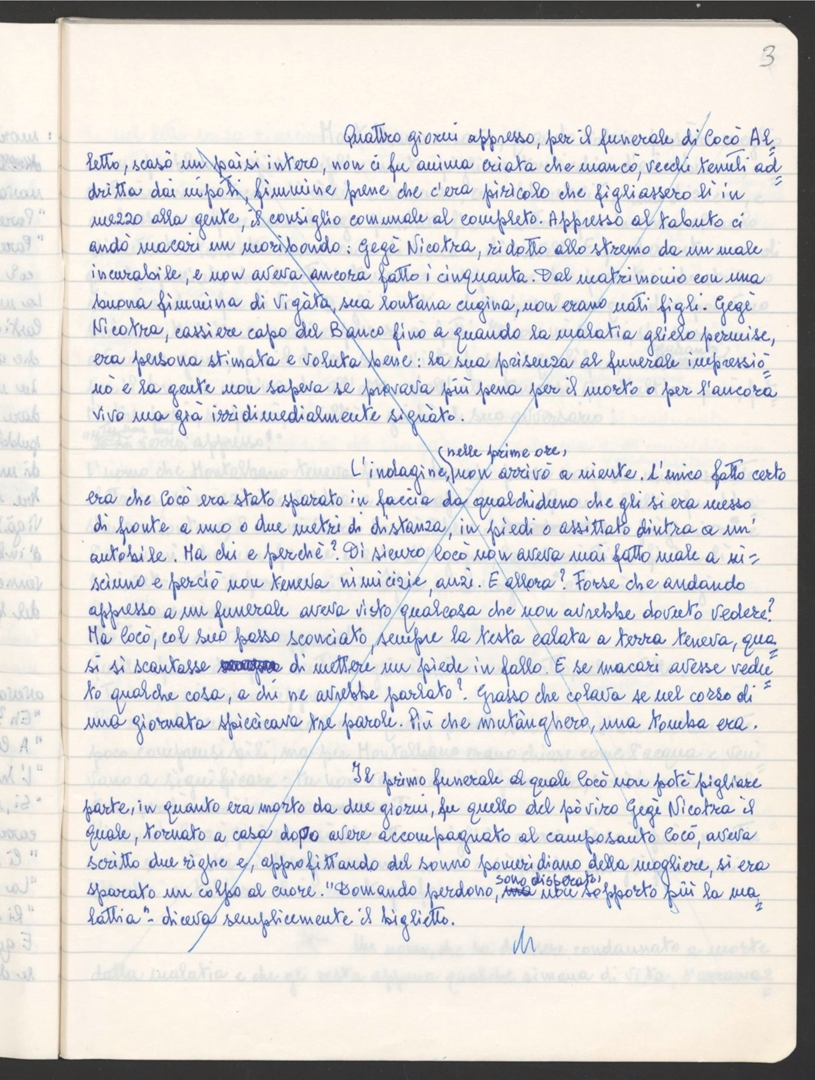 3
Quattro giorni appresso, per il funerale di Cocò Al=
letto, scasò un paìsi intero, non ci fu anima criata che mancò, vecchi tenuti ad=
dritta dai nipoti, fimmine prene che c'era piricolo che figliassero lì in
mezzo alla gente, il consiglio communale al completo. Appresso al tabuto ci
andò macari un moribondo: Gegè Nicotra, ridotto allo stremo da un male
incurabile, e non aveva ancora fatto i cinquanta. Dal matrimonio con una
buona fimmina di Vigàta, sua lontana cugina, non erano nati figli. Gegè
Nicotra, cassiere capo del Banco fino a quando la malatia glielo permise,
era persona stimata e voluta bene: la sua prisenza al funerale impressio=
nò e la gente non sapeva se provava più pena per il morto o per l'ancora
vivo ma già irridimedialmente signàto.
L'indagine, (nelle prime ore,) non arrivò a niente. L'unico fatto certo
era che Cocò era stato sparato in faccia da qualchiduno che gli si era messo
di fronte a uno o due metri di distanza, in piedi o assittato dintra a un'
autobile. Ma chi e perchè? Di sicuro Cocò non aveva mai fatto male a ni=
sciuno e perciò non teneva nimicizie, anzi. E allora? Forse che andando
appresso a un funerale aveva visto qualcosa che non avrebbe dovuto vedere?
Ma Cocò, col suo passo sconciato sempre la testa calata a terra teneva, qua=
si si scantasse di mettere un piede in fallo. E se macari avesse vedu=
to qualche cosa, a chi ne avrebbe parlato? Grasso che colava se nel corso di
una giornata spiccicava tre parole. Più che mutànghero, una tomba era.
Il primo funerale al quale Cocò non potè pigliare
parte, in quanto era morto da due giorni, fu quello del pòviro Gegè Nicotra il
quale, tornato a casa dopo avere accompagnato al camposanto Cocò, aveva
scritto due righe e, approfittando del sonno pomeridiano della mogliere, si era
sparato un colpo al cuore. "Domando perdono, sono disperato, non sopporto più la ma=
lattia" - diceva semplicemente il biglietto.